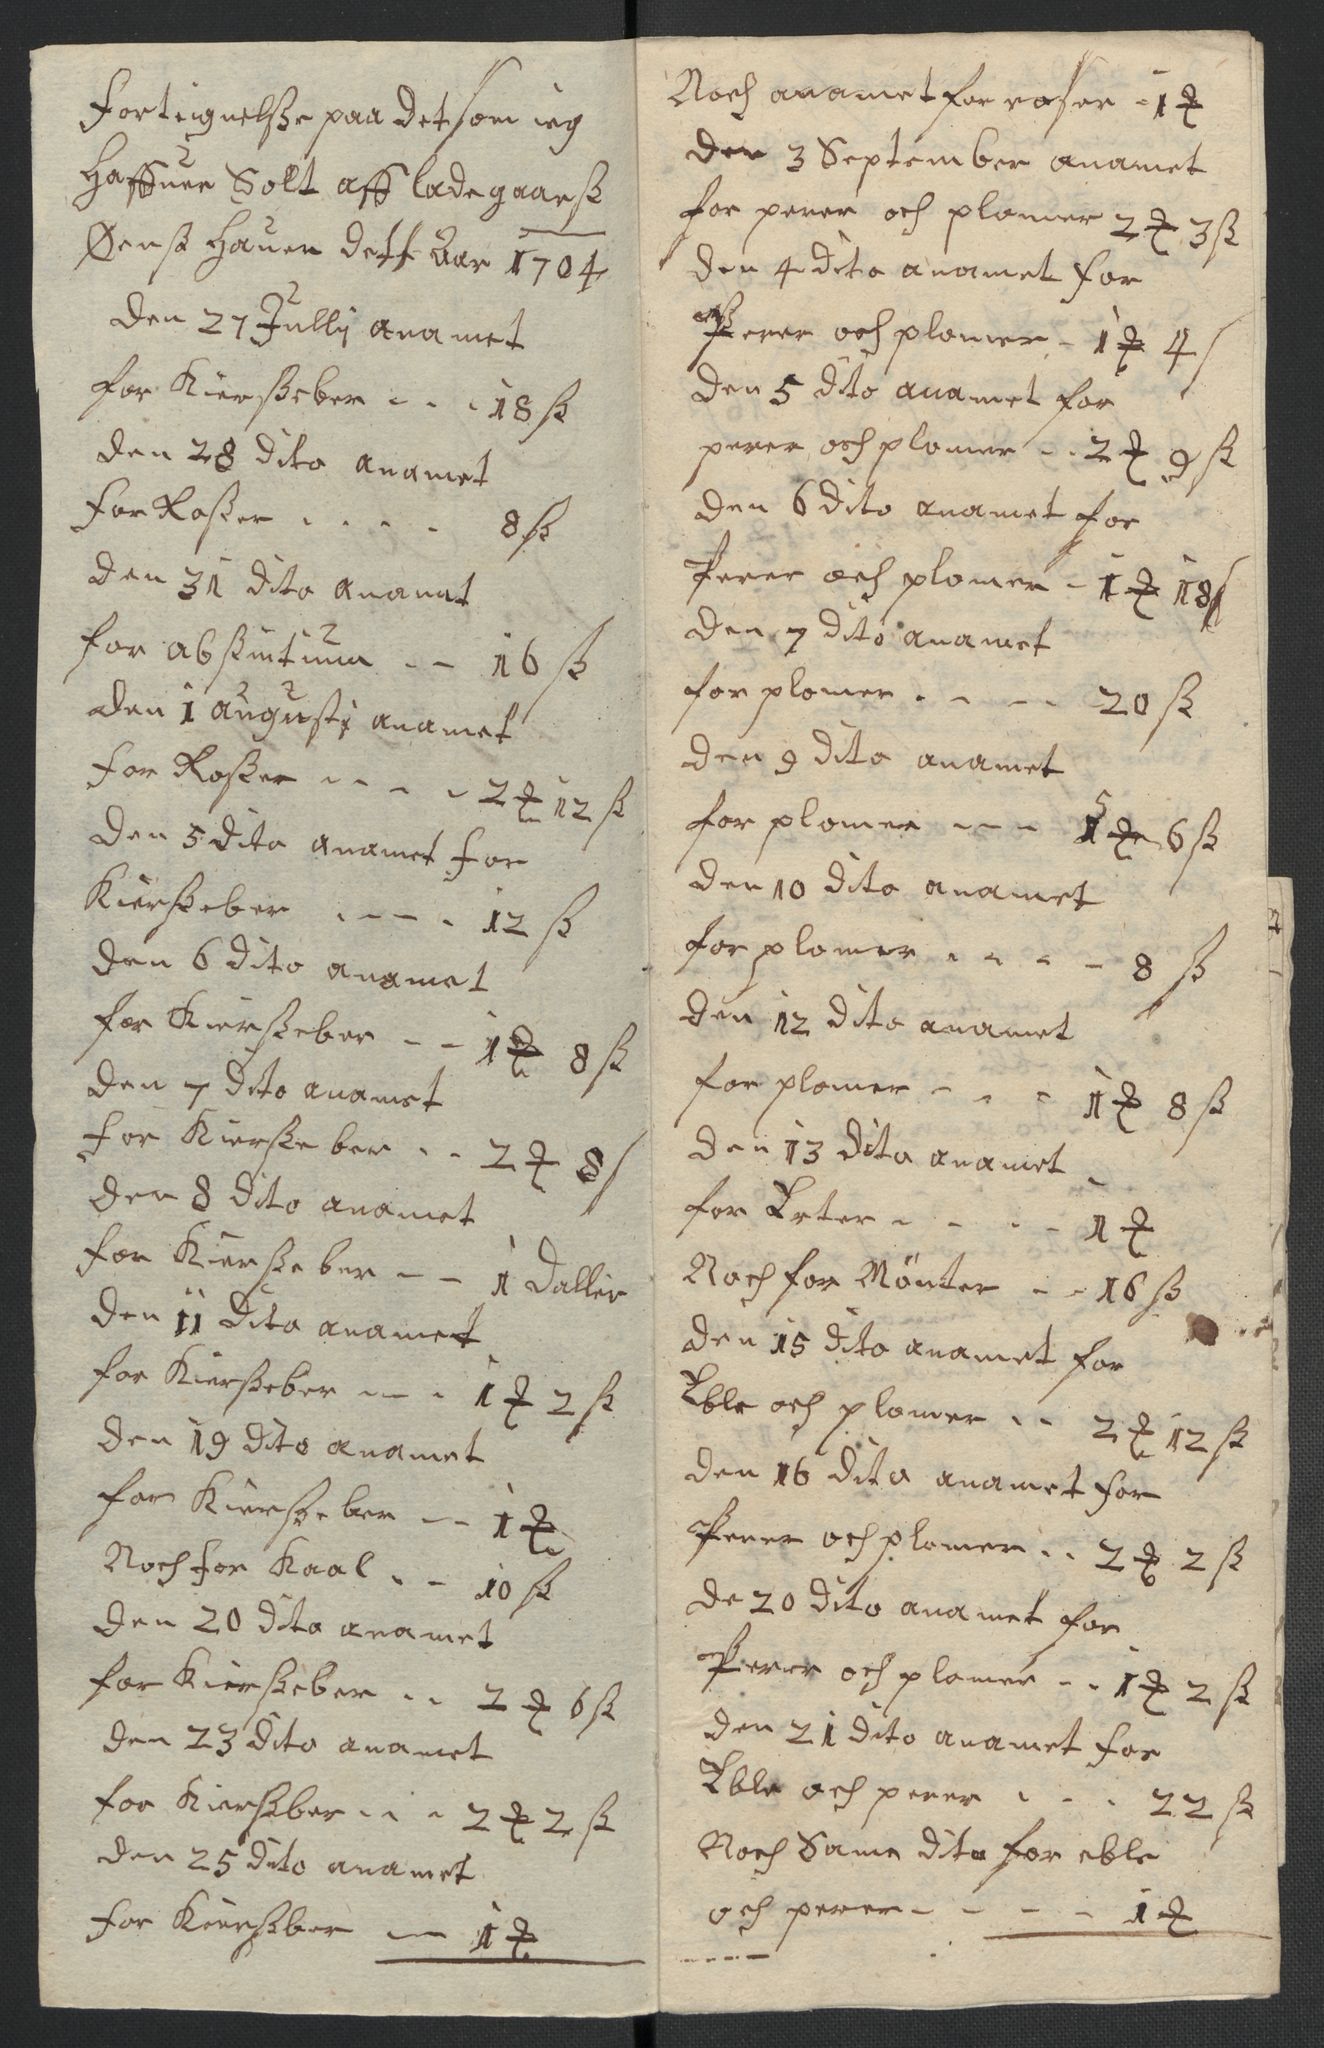 Forteignelsse paa det som ieg
Haffuer Solt aff ladegaarss
Øenss Hauer dett Aar 1704
den 27 Jullij anamet
for Kiersseber - - - 18 ss
den 28 dito anamet
for Rosser - - - - 8 ss
den 31 dito anamet
for absintium - - 16 ss
den 1 augusti anamet
for Rosser - - - - 2 ꝳ 12 ss
den 5 dito anamet for
Kiersseber - - - - 12 ss
den 6 dito anamet
for Kiersseber - - 1 ꝳ 8 ss
den 7 dito anamet
for Kiersseber - - 2 ꝳ 8 s
den 8 dito anamet
for Kiersseber - - 1 Daller
den 11 dito anamet
for Kiersseber - - - 1 ꝳ 2 ss
den 19 dito anamet
for Kiersseber - - 1 ꝳ
Noch for Kaal - - 10 ss
den 20 dito anamet
for Kiersseber - - 2 ꝳ 6 ss
den 23 dito anamet
for Kierssber - - - 2 ꝳ 2 ss
den 25 dito anamet
for Kierssber - - 1 ꝳ
Noch anamet for roser - 1 ꝳ
den 3 September anamet
for perer och plomer 2 ꝳ 3 ss
den 4 dito anamet for
Perer och plomer - 1 ꝳ 4 s
den 5 dito anamet for
perer och plomer - - 2 ꝳ 9 ss
den 6 dito anamet for
Perer och plomer - 1 ꝳ 18 s
den 7 dito anamet
for plomer - - - - 20 ss
den 9 dito anamet
for plomer - - - ꝳ 6 ss
den 10 dito anamet
for plomer - - - - 8 ss
den 12 dito anamet
for plomer - - - 1 ꝳ 8 ss
den 13 dito anamet
for Erter - - - - 1 ꝳ
Noch for Mönter - - 16 ss
den 15 dito anamet for
Eble och plomer - - 2 ꝳ 12 ss
den 16 dito anamet for
Perer och plomer - - 2 ꝳ 2 ss
de 20 dito anamet for
Perer och plomer - - 1 ꝳ 2 ss
den 21 dito anamet for
Eble och perer - - - 22 ss
Noch Same dito for eble
och perer - - - - 1 ꝳ